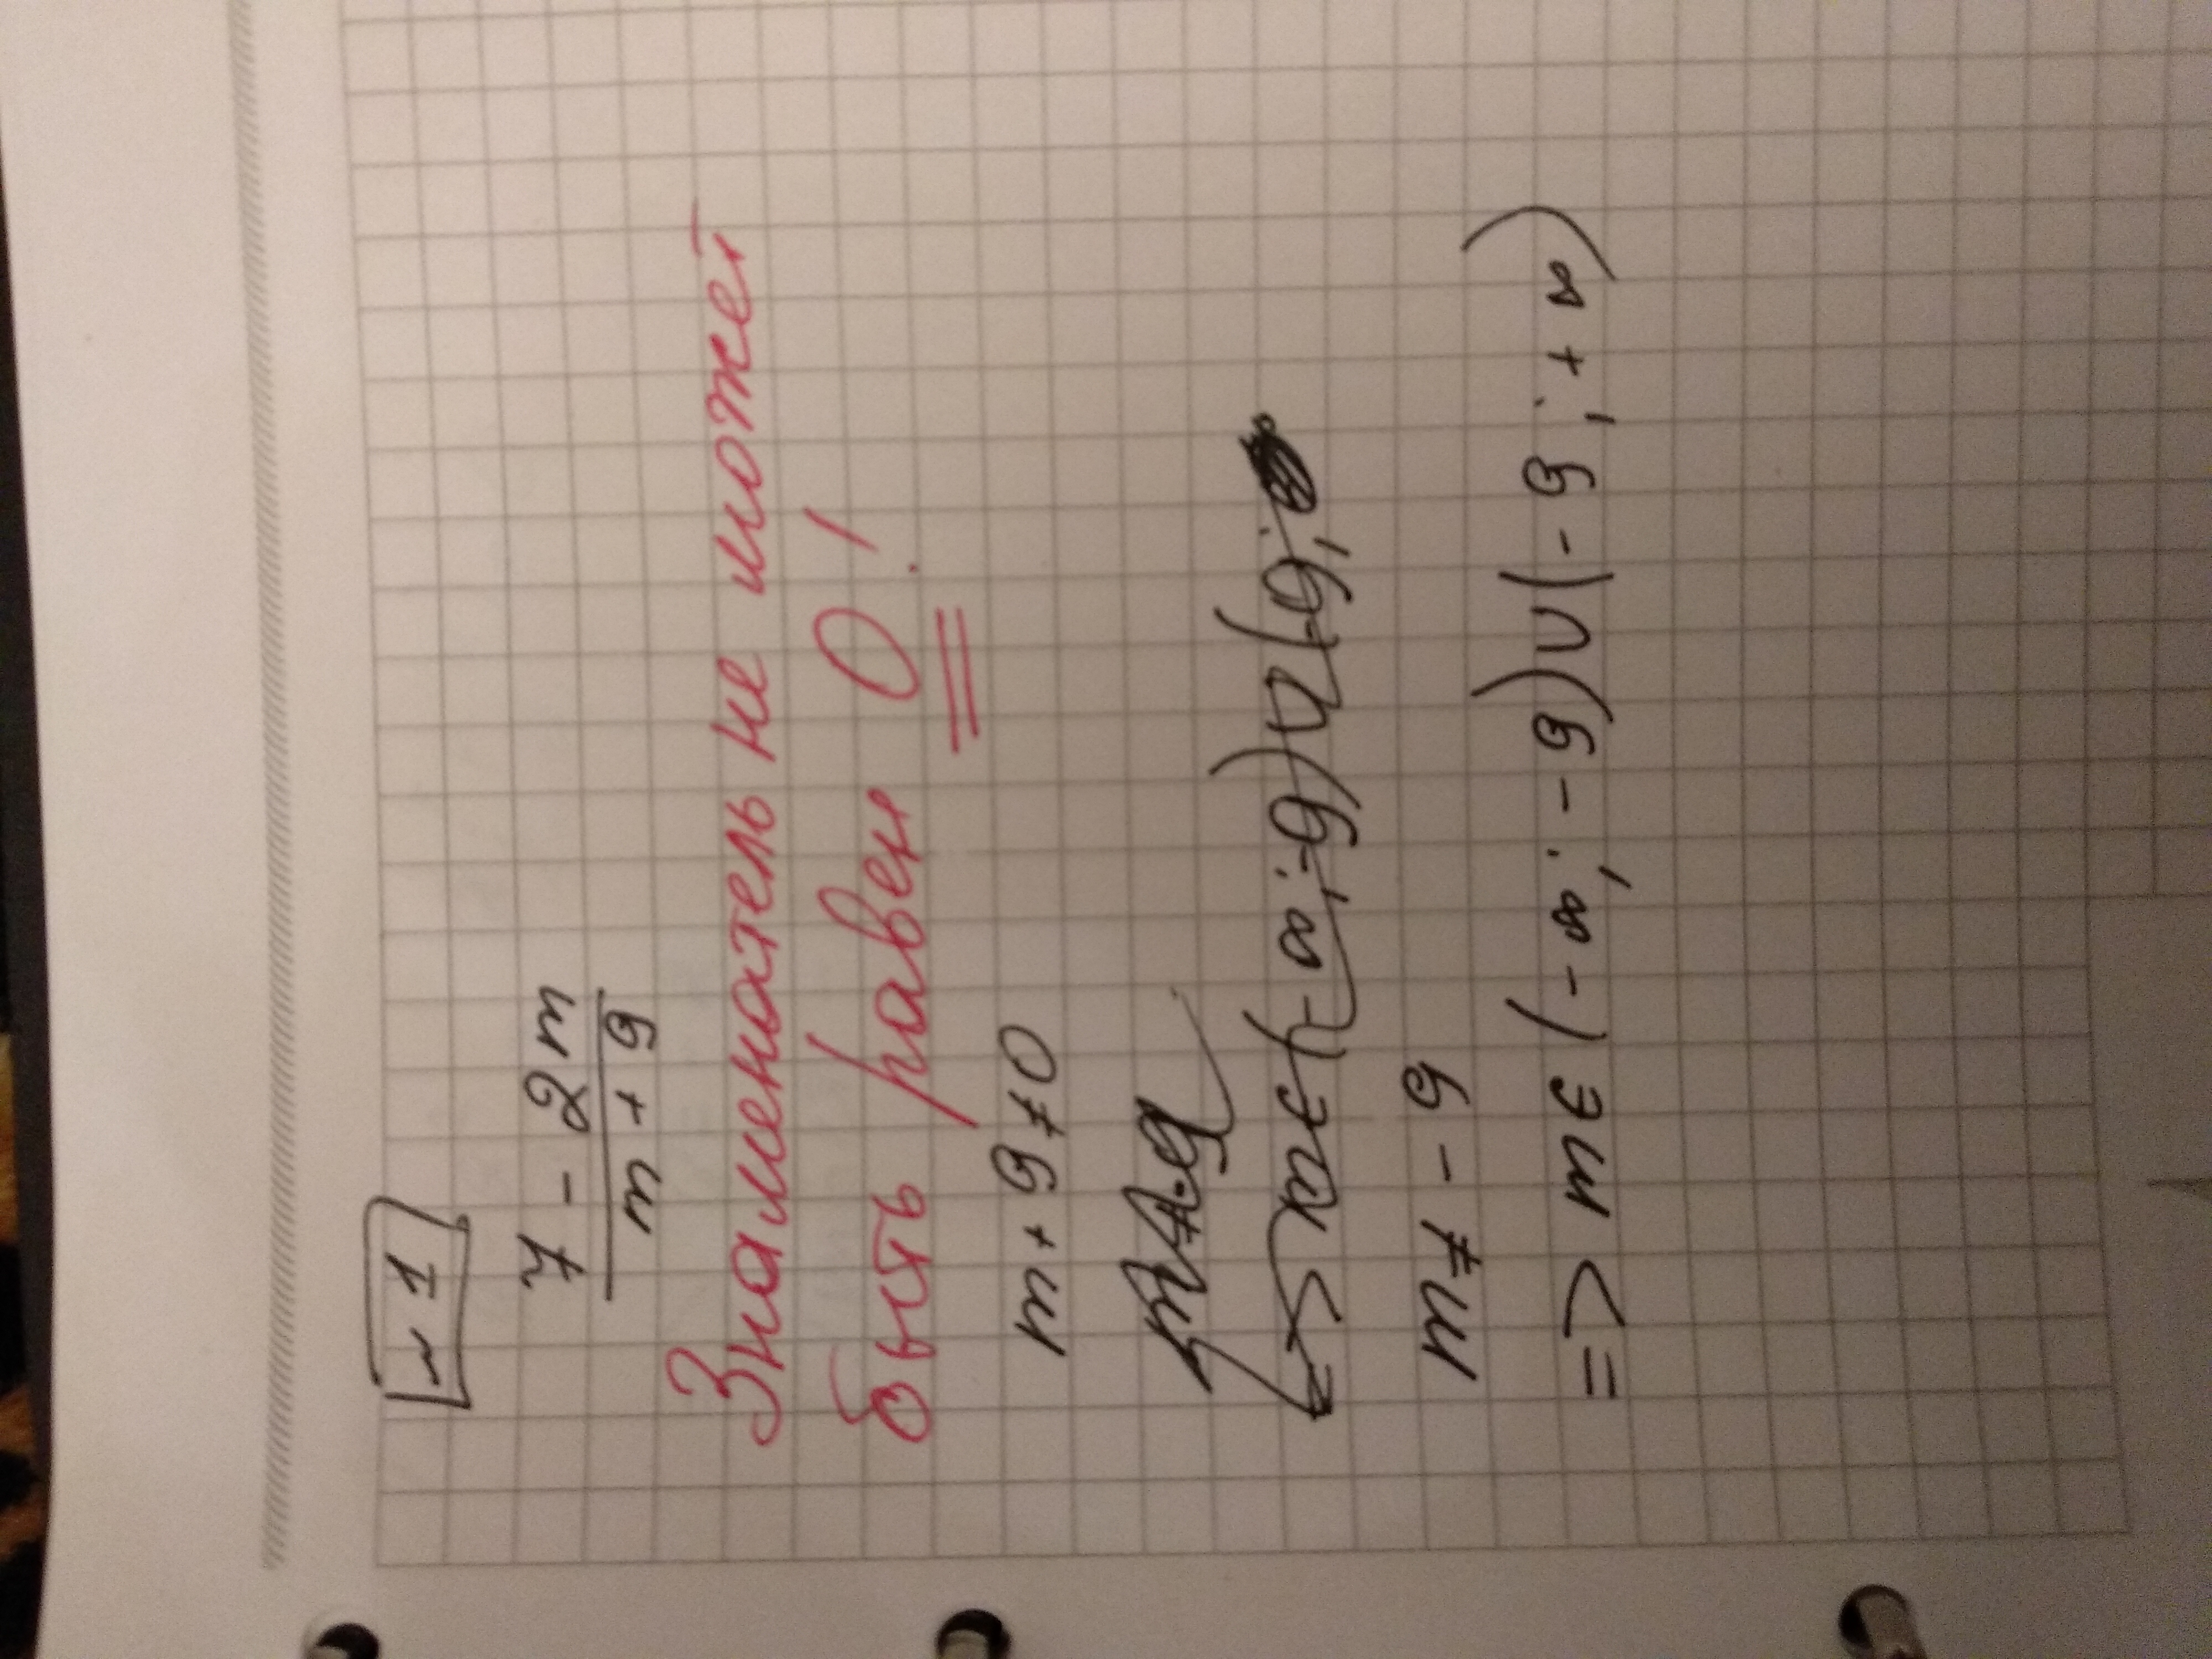 № 1
7 - 2m
m + 9
Знаменатель не может
быть равен 0!
m + 9 ≠ 0
m ≠ - 9
=> m ∈ (- ∞; - 9) ∪ (- 9; + ∞)